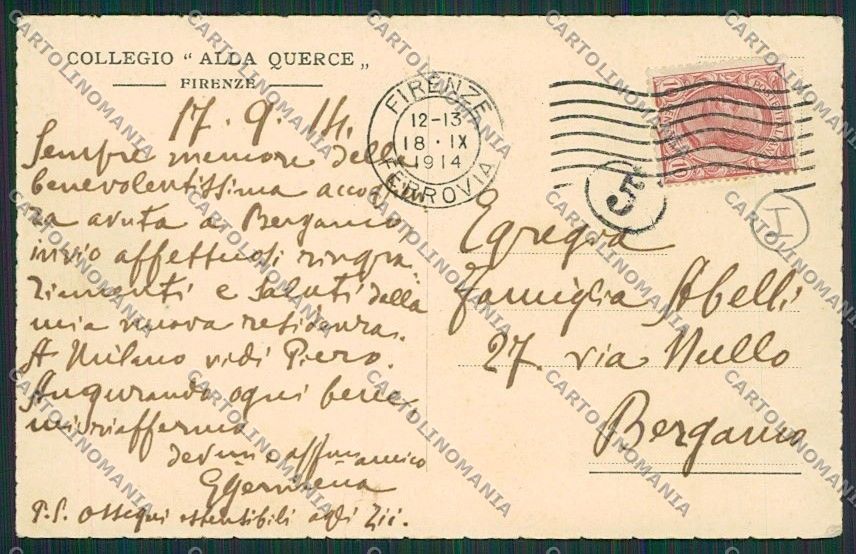 COLLEGIO “ ALLA QUERCE „
FIRENZE
17. 9. 14.
Sempre memore della
benevolentissima accoglien
za avuta a Bergamo,
invio affettuosi ringra-
ziamenti e saluti dalla
mia nuova residenza.
A Milano vidi Piero.
Augurando ogni bene,
mi riaffermo
dev.mo e aff.mo amico
P.S. Ossequi estensibili agli Zii.
FIRENZE
12-13
18 · IX
1914
FERROVIA
5
Egregia
Famiglia Abelli
27. via Nullo
Bergamo
CARTOLINOMANIA